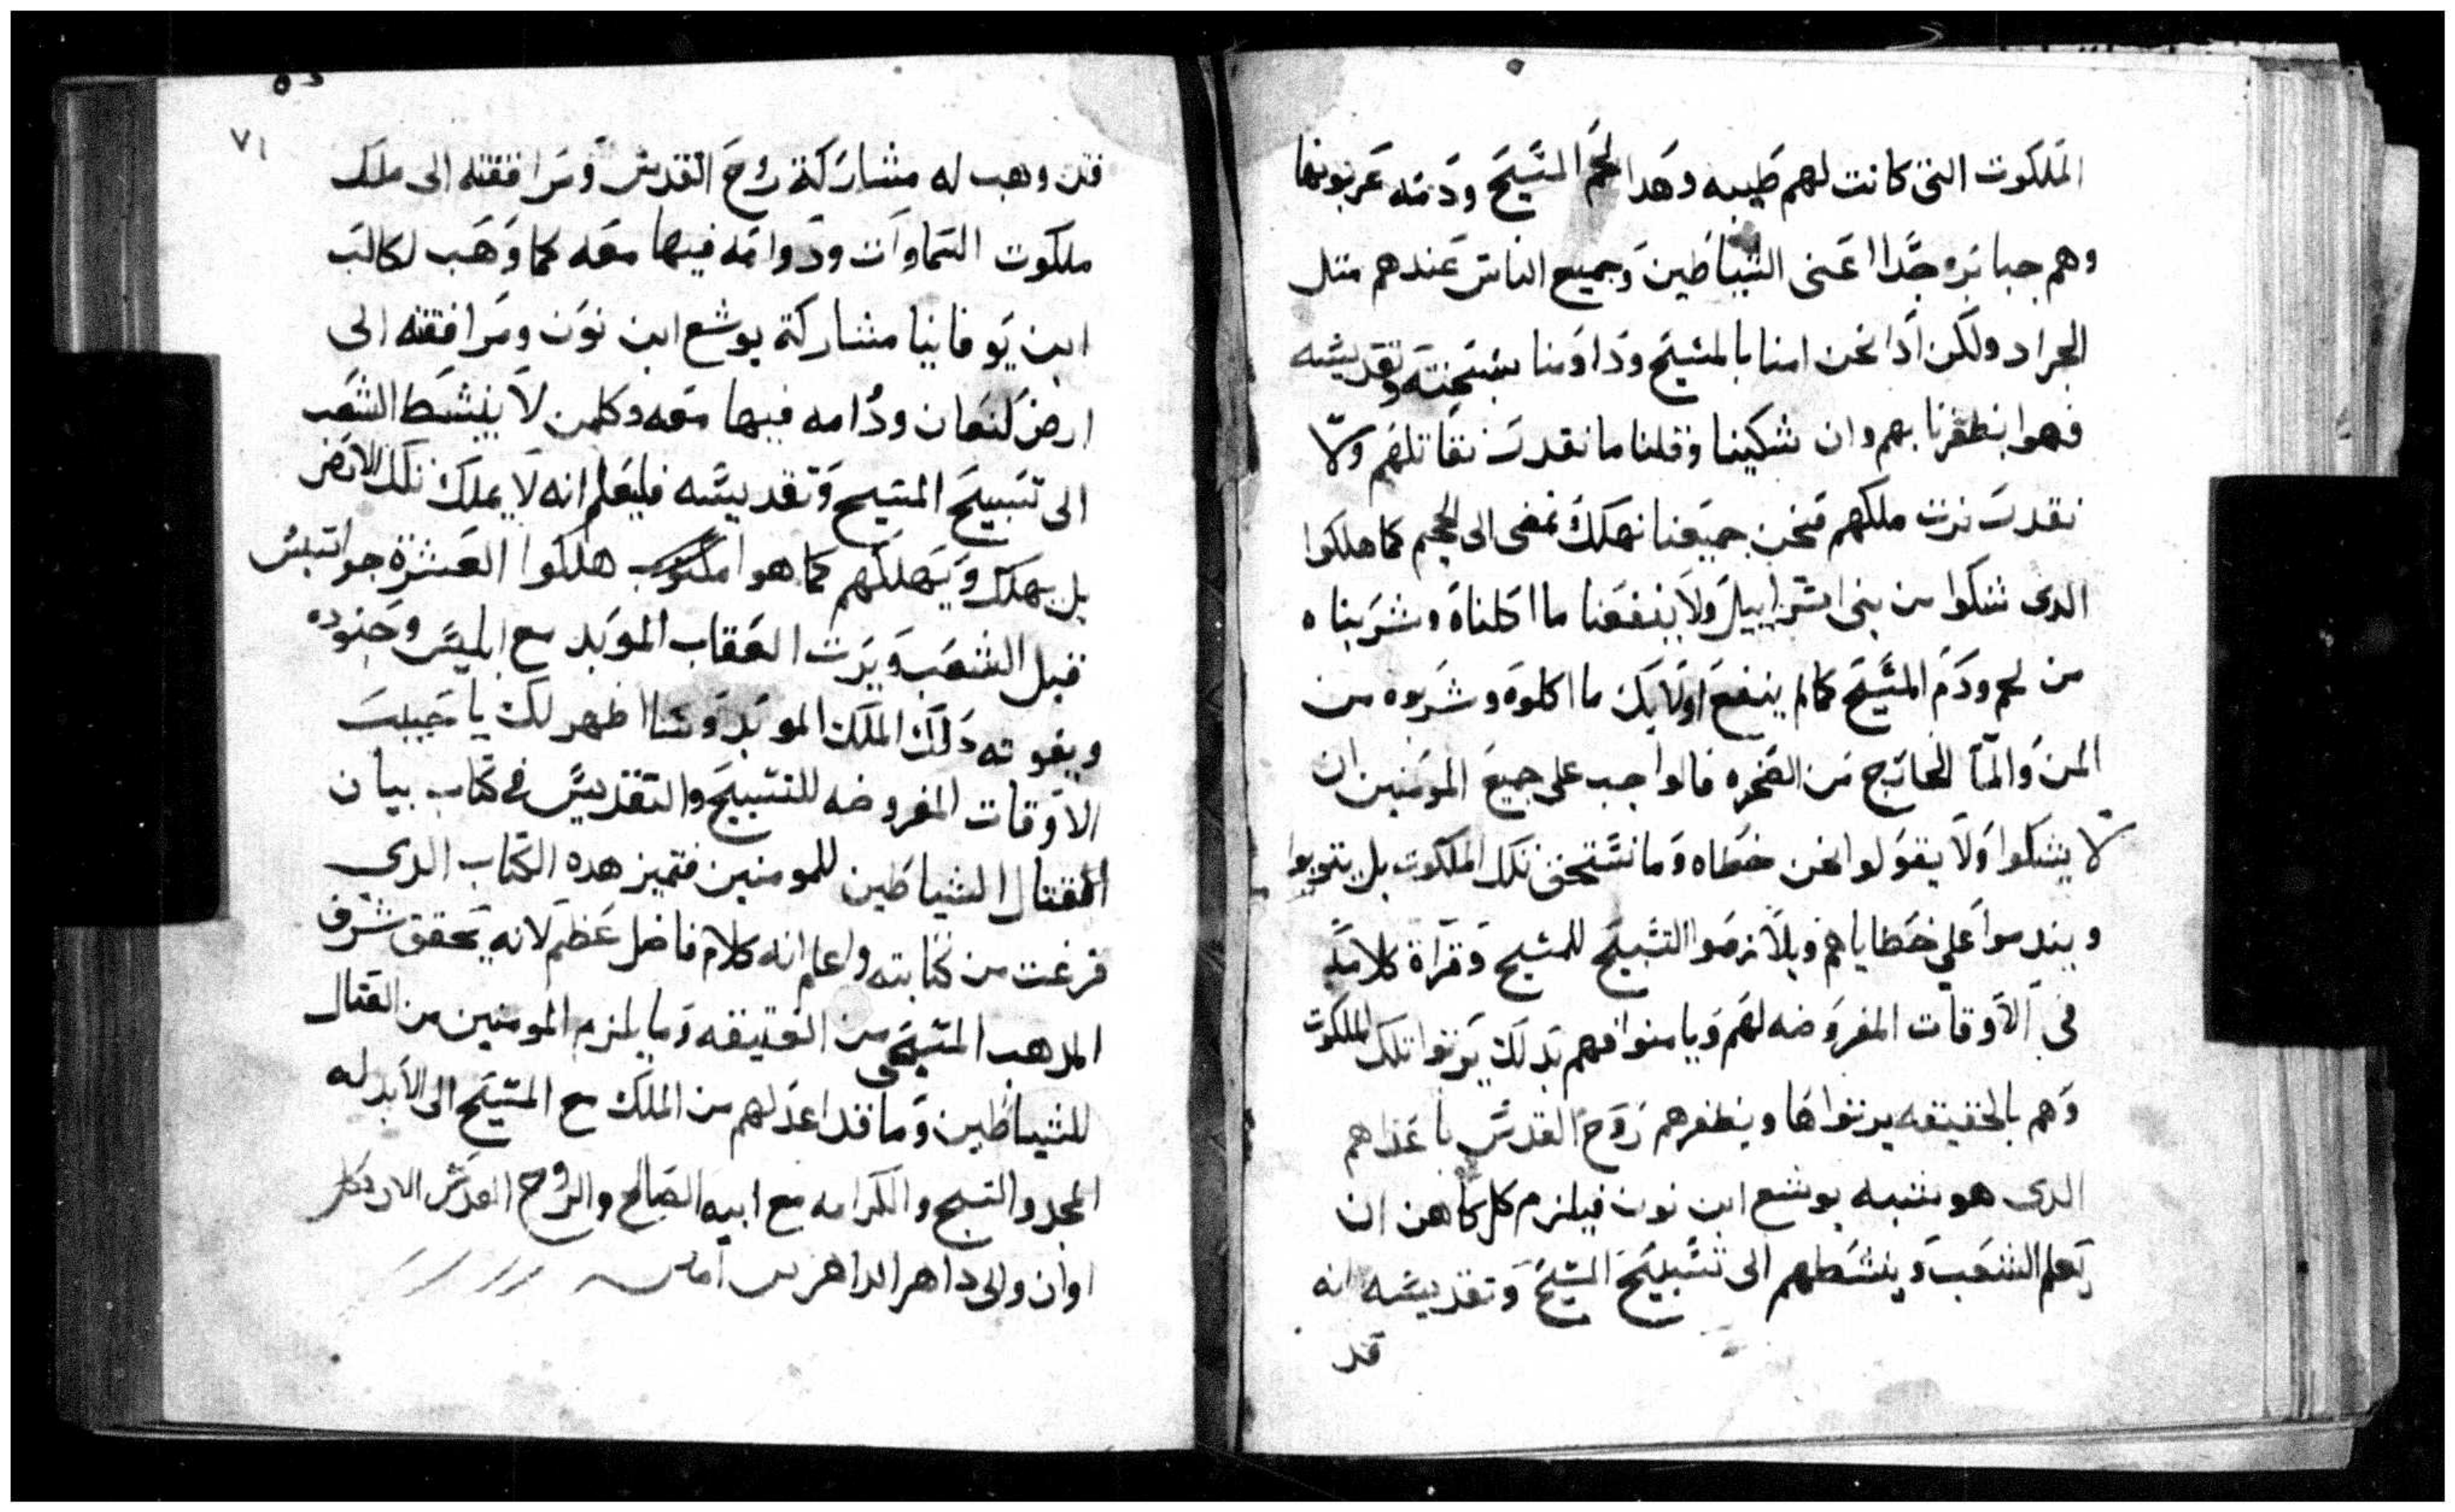 الملكوت التى كانت لهم طيبه وهدا لحم المسيح ودمه عربونها
وهم جبابره جدا اعنى الشياطين وجميع الناس عندهم متل
الجراد ولكن ادا نحن امنا بالمسيح وداومنا بتسبحته وتقديسه
فهوا ينظفرنا بهم وان شكينا وقلنا ما نقدر نقاتلهم ولا
نقدر نرت ملكهم فنحن جميعنا نهلك نمضى الى الجحيم كما هلكوا
الدى شكوا من بنى اسراييل ولا ينفعنا ما اكلناه وشربناه
من لحم ودم المسيح كما لم ينفع اوليك ما اكلوه وشربوه من
المن والما الخارج من الصخره فالواجب على جميع المومنين ان
لا يشكوا ولا يقولوا نحن خطاه وما نستحق تلك الملكوت بل يتوبوا
ويندموا على خطاياهم ويلازموا التسبيح للمسيح وقراة كلامه
فى الاوقات المفروضه لهم ويامنوا فهم بدلك يرتوا تلك الملكوت
وهم بالحقيقه يرتواها وينظفرهم روح القدس باعداهم
الدى هو شبه يوشع ابن نون فيلزم كل كاهن ان
يعلم الشعب وينشطهم الى تسبيح المسيح وتقديسه انه
قد
٧١
قد وهب له مشاركة روح القدس ومرافقته الى ملك
ملكوت السماوات ودوامه فيها معه كما وهب لكالب
ابن يوفانيا مشاركة يوشع ابن نون ومرافقته الى
ارض كنعان ودامه فيها معه وكلمن لا ينشط الشعب
الى تسبيح المسيح وتقديسه فليعلم انه لا يملك تلك الارض
بل يهلك ويهلكهم كما هوا مكتوب هلكوا العشرة جواتيس
قبل الشعب ويرت العقاب الموبد مع ابليس وجنوده
ويفوته دلك الملك الموبد وهنا اظهر لك يا حبيب
الاوقات المفروضه للتسبيح والتقديس فى كتاب بيان
القتال الشياطين للمومنين فتميز هده الكتاب الدى
فرغت من كتابته واعلم انه كلام فاضل عظم لانه يحقق شرف
المدهب المسيحى من العتيقه وما يلزم المومنين من القتال
للشياطين وما قد اعد لهم من الملك مع المسيح الى الابد له
المجد والتسبح والكرامه مع ابيه الصالح والروح القدس الان وكل
اوان والى داهر الداهرين امين